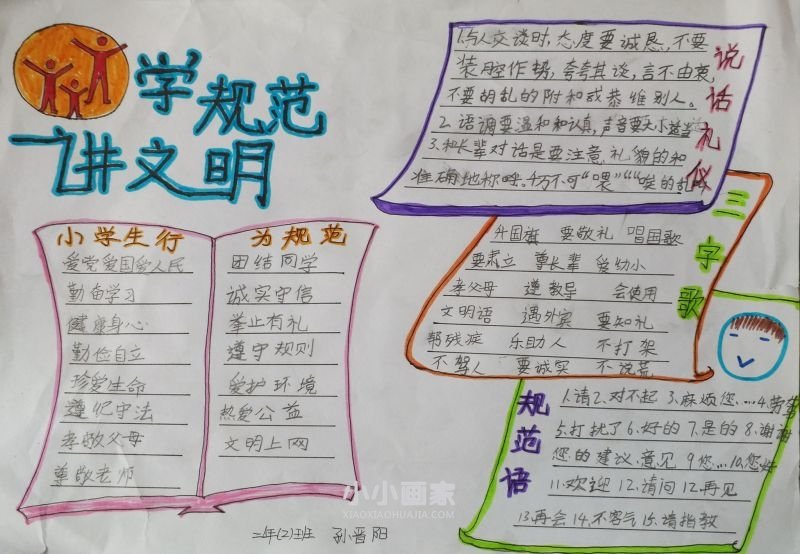 学规范
讲文明
小学生行为规范
爱党爱国爱人民
勤奋学习
健康身心
勤俭自立
珍爱生命
遵纪守法
孝敬父母
尊敬老师
团结同学
诚实守信
举止有礼
遵守规则
爱护环境
热爱公益
文明上网
二年(2)班 孙晋阳
说话礼仪
1.与人交谈时,态度要诚恳,不要
装腔作势,夸夸其谈,言不由衷,
不要胡乱的附和或恭维别人。
2.语调要温和和认真,声音要大小适当
3.和长辈对话是要注意礼貌的和
准确地称呼。千万不可“喂”“唉的乱叫
三字歌
升国旗 要敬礼 唱国歌
要肃立 尊长辈 爱幼小
孝父母 遵教导 会使用
文明语 遇外宾 要知礼
帮残疾 乐助人 不打架
不骂人 要诚实 不说荒
规范语
1.请2.对不起 3.麻烦您....4.劳驾
5.打扰了6.好的7.是的8.谢谢
您的建议意见 9您...10.您好
11.欢迎 12.请问 12.再见
13.再会14.不客气15.请指教
小小画家
XIAOXIAOHUAJIA.COM